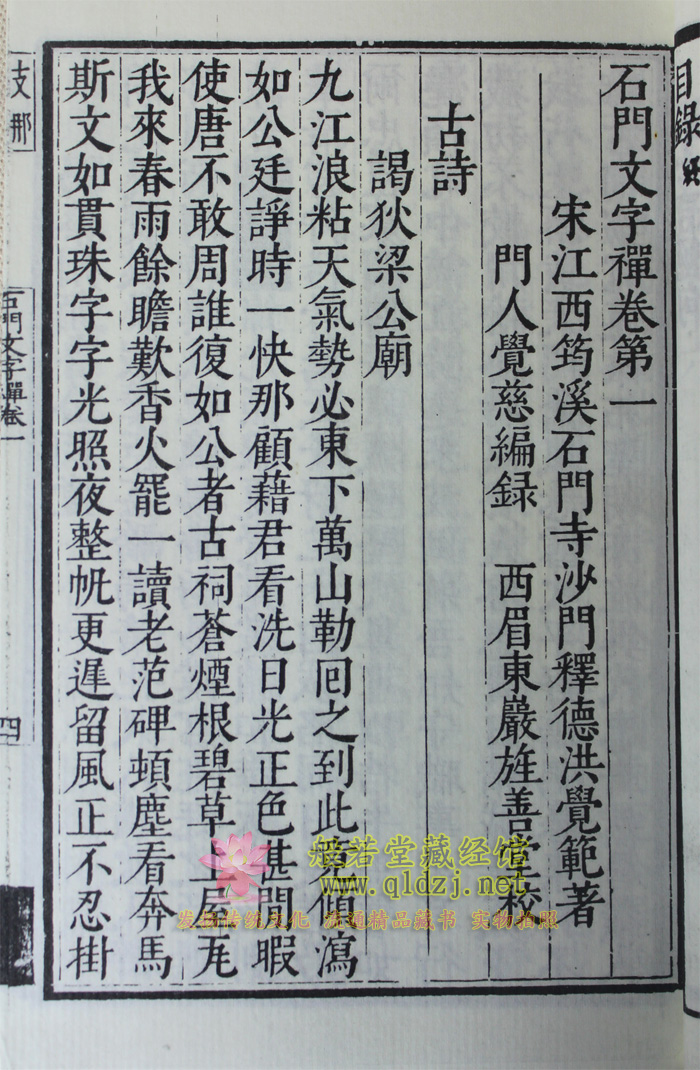 目錄
石門文字禪卷第一
宋江西筠溪石門寺沙門釋德洪覺範著
門人覺慈編録　西眉東巖旌善堂校
古詩
謁狄梁公廟
九江浪粘天氣勢必東下萬山勒回之到此竟傾瀉
如公廷諍時一快那顧藉君看洗日光正色甚閒暇
使唐不敢周誰復如公者古祠蒼煙根碧草上屋瓦
我來春雨餘瞻歎香火罷一讀老范碑頓塵看奔馬
斯文如貫珠字字光照夜整帆更遲留風正不忍掛
支那
石門文字禪卷一
四
般若堂藏经馆
www.qldzj.net
发扬传统文化 流通精品藏书 实物拍照